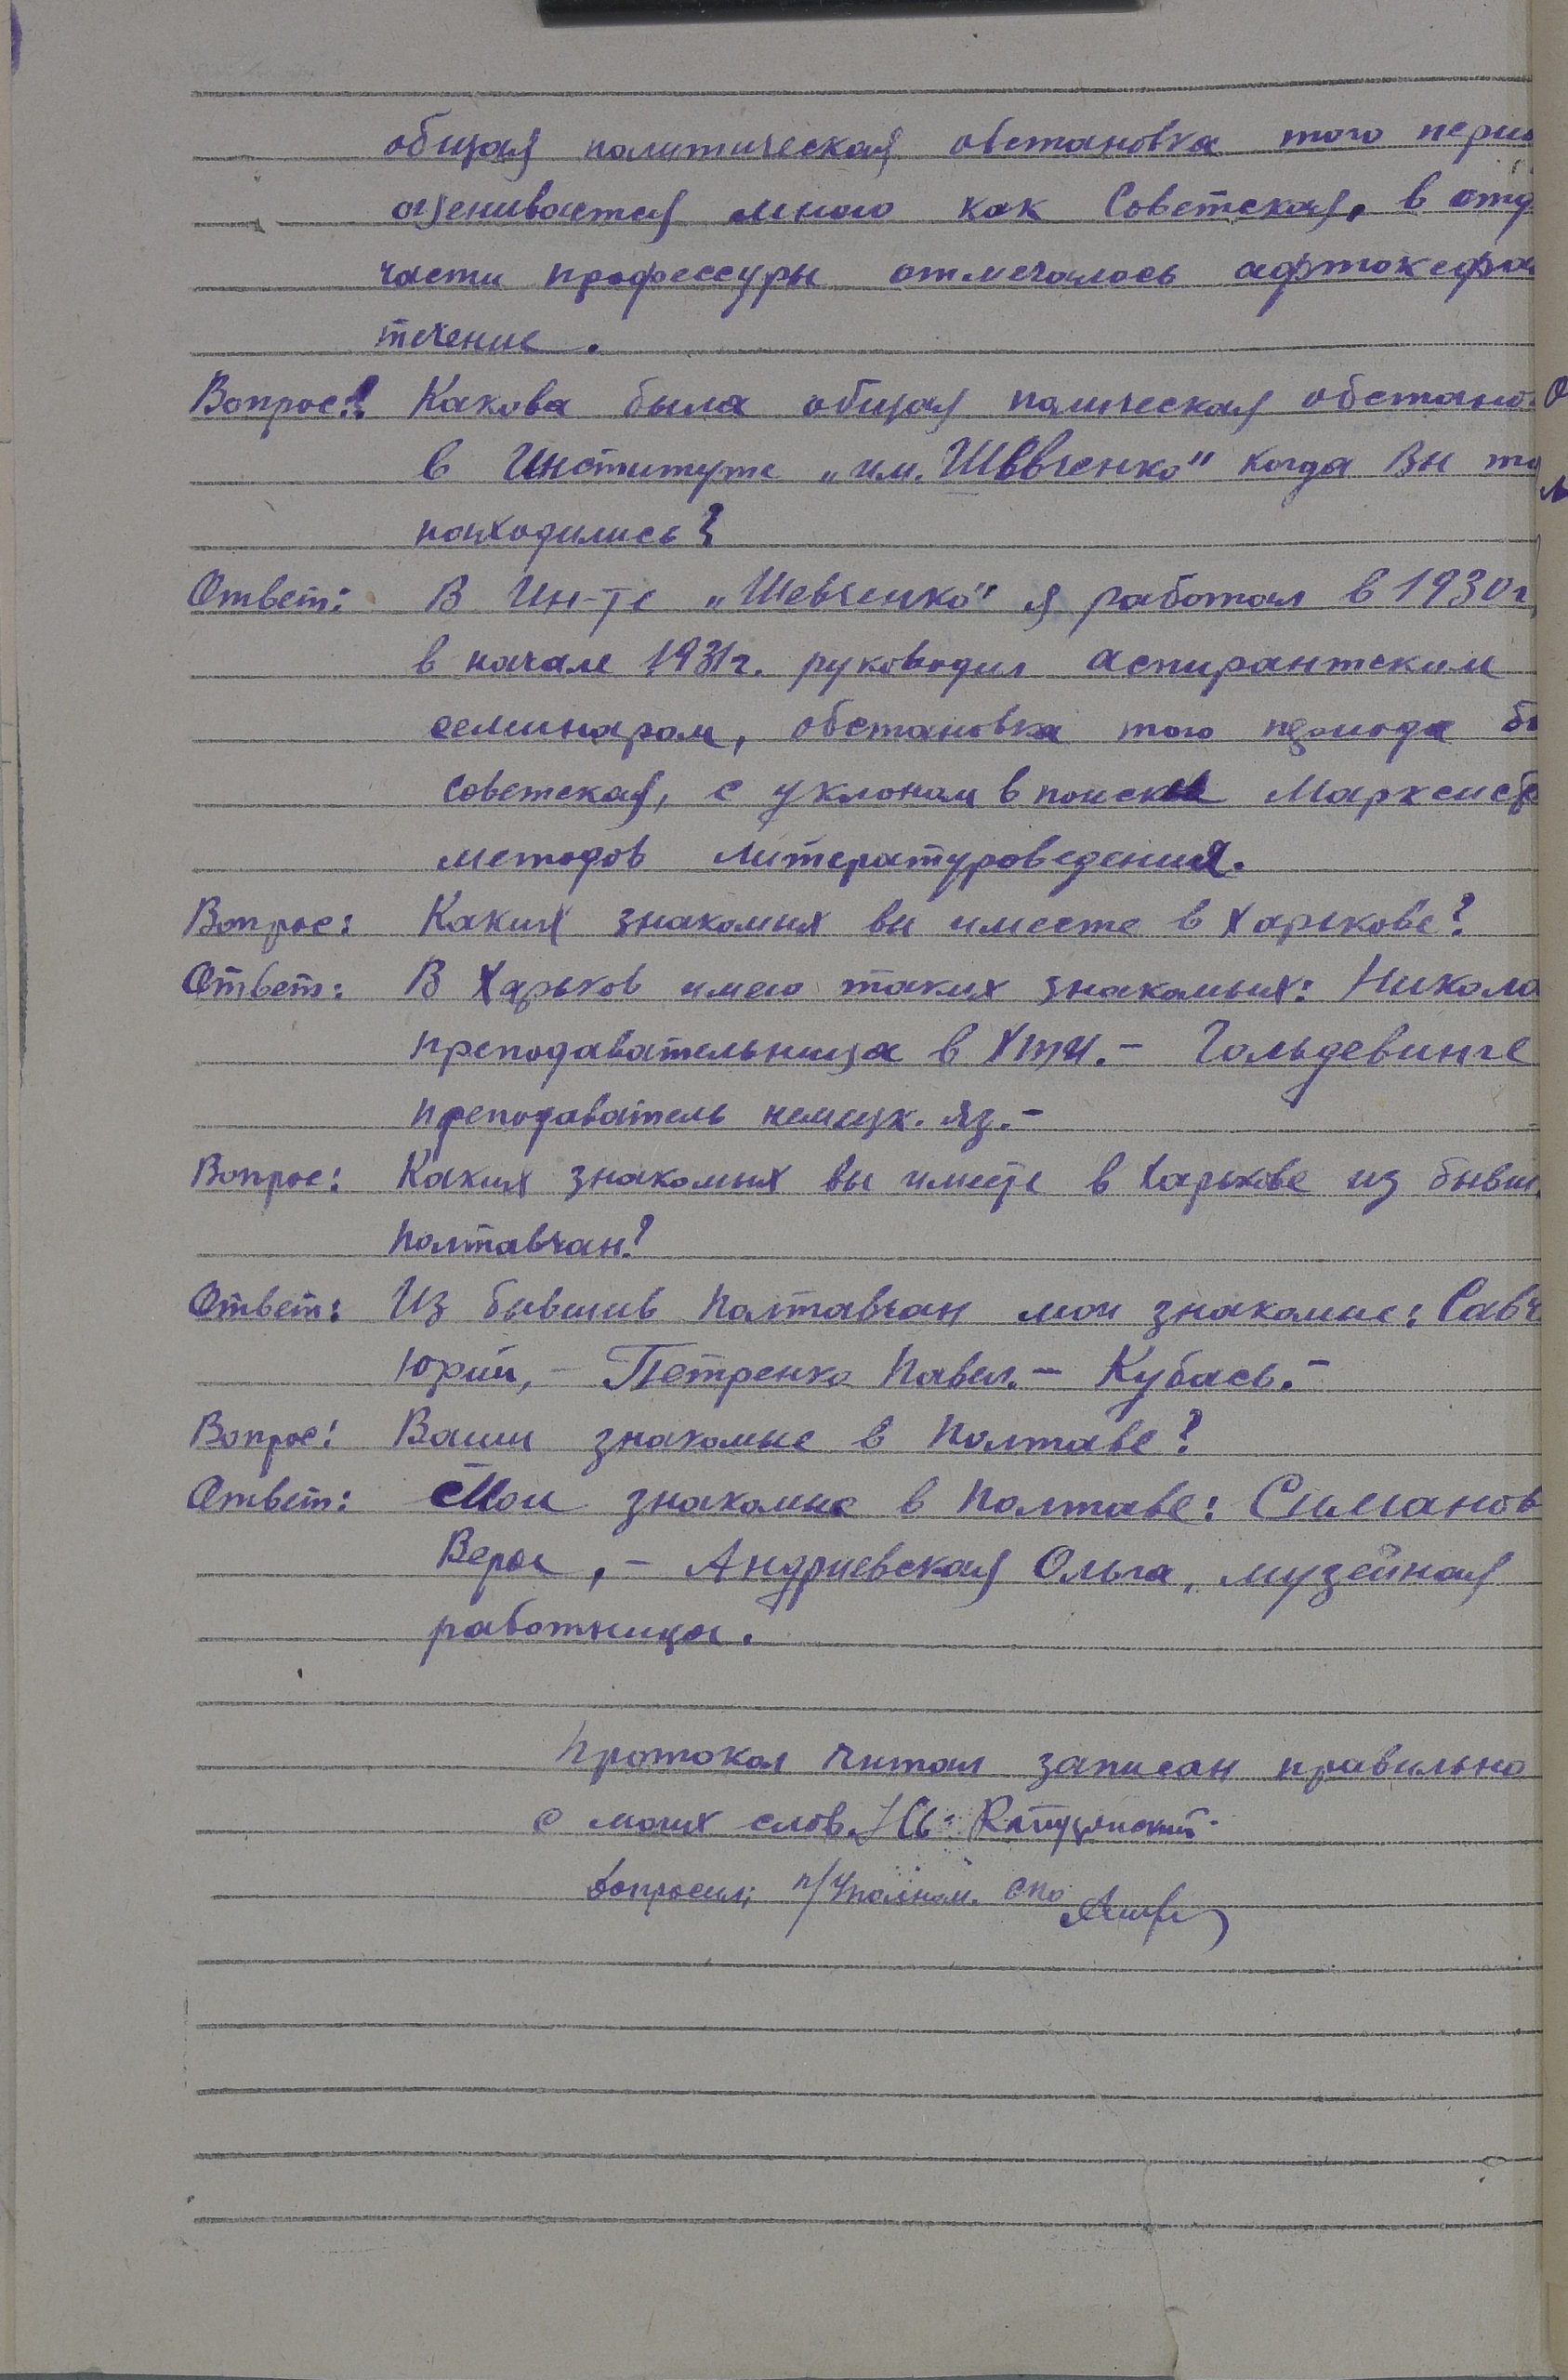 общая политическая обстановка того перио
оценивается мною как Советская, в отд
части профессуры отмечалось афтокефа
течение.
Вопрос: Какова была общая полическая обстано
в Институте „им. Шевченко" когда Вы та
находились?
Ответ: В Ин-те „Шевченко" я работал в 1930 г.
в начале 1931 г. руководил аспирантским
семинаром, обстановка того периода бы
Советская, с уклоном в поиски Марксист
методов литературоведения.
Вопрос: Каких знакомых вы имеете в Харькове?
Ответ: В Харьков имею таких знакомых: Никола
преподавательница в ХТИ. - Гольдевинге
преподаватель немецк. яз. -
Вопрос: Каких знакомых вы имеете в Харькове из бывш
полтавчан?
Ответ: Из бывшив полтавчан мои знакомые: Савч
Юрий, - Петренко Павел. - Кубась. -
Вопрос: Ваши знакомые в Полтаве?
Ответ: Мои знакомые в Полтаве: Симанов
Вера, - Андриевская Ольга, музейная
работница.
Протокол читал записан правильно
с моих слов.
Допросил: п/Уполном. СПО